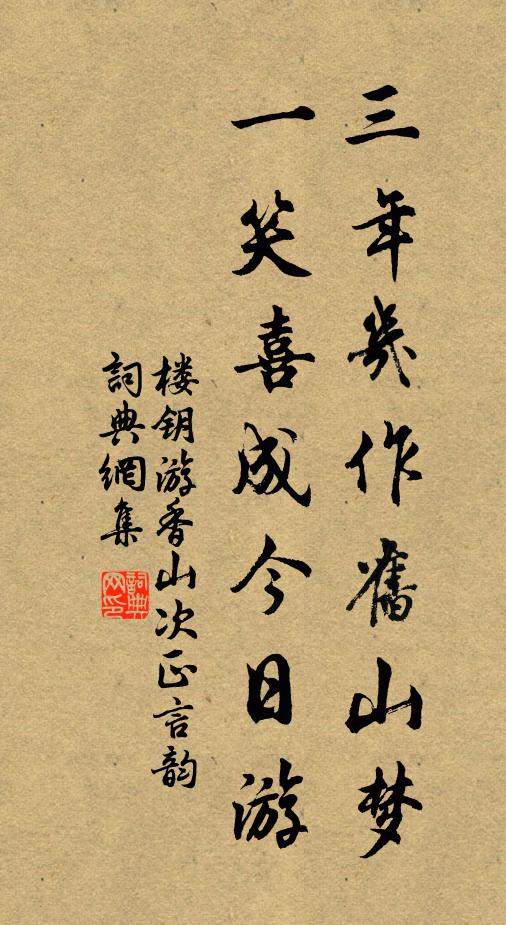 三年幾作舊山梦
一笑喜成今日游
楼钥游香山次正言韵
詞典網集
詞典网印